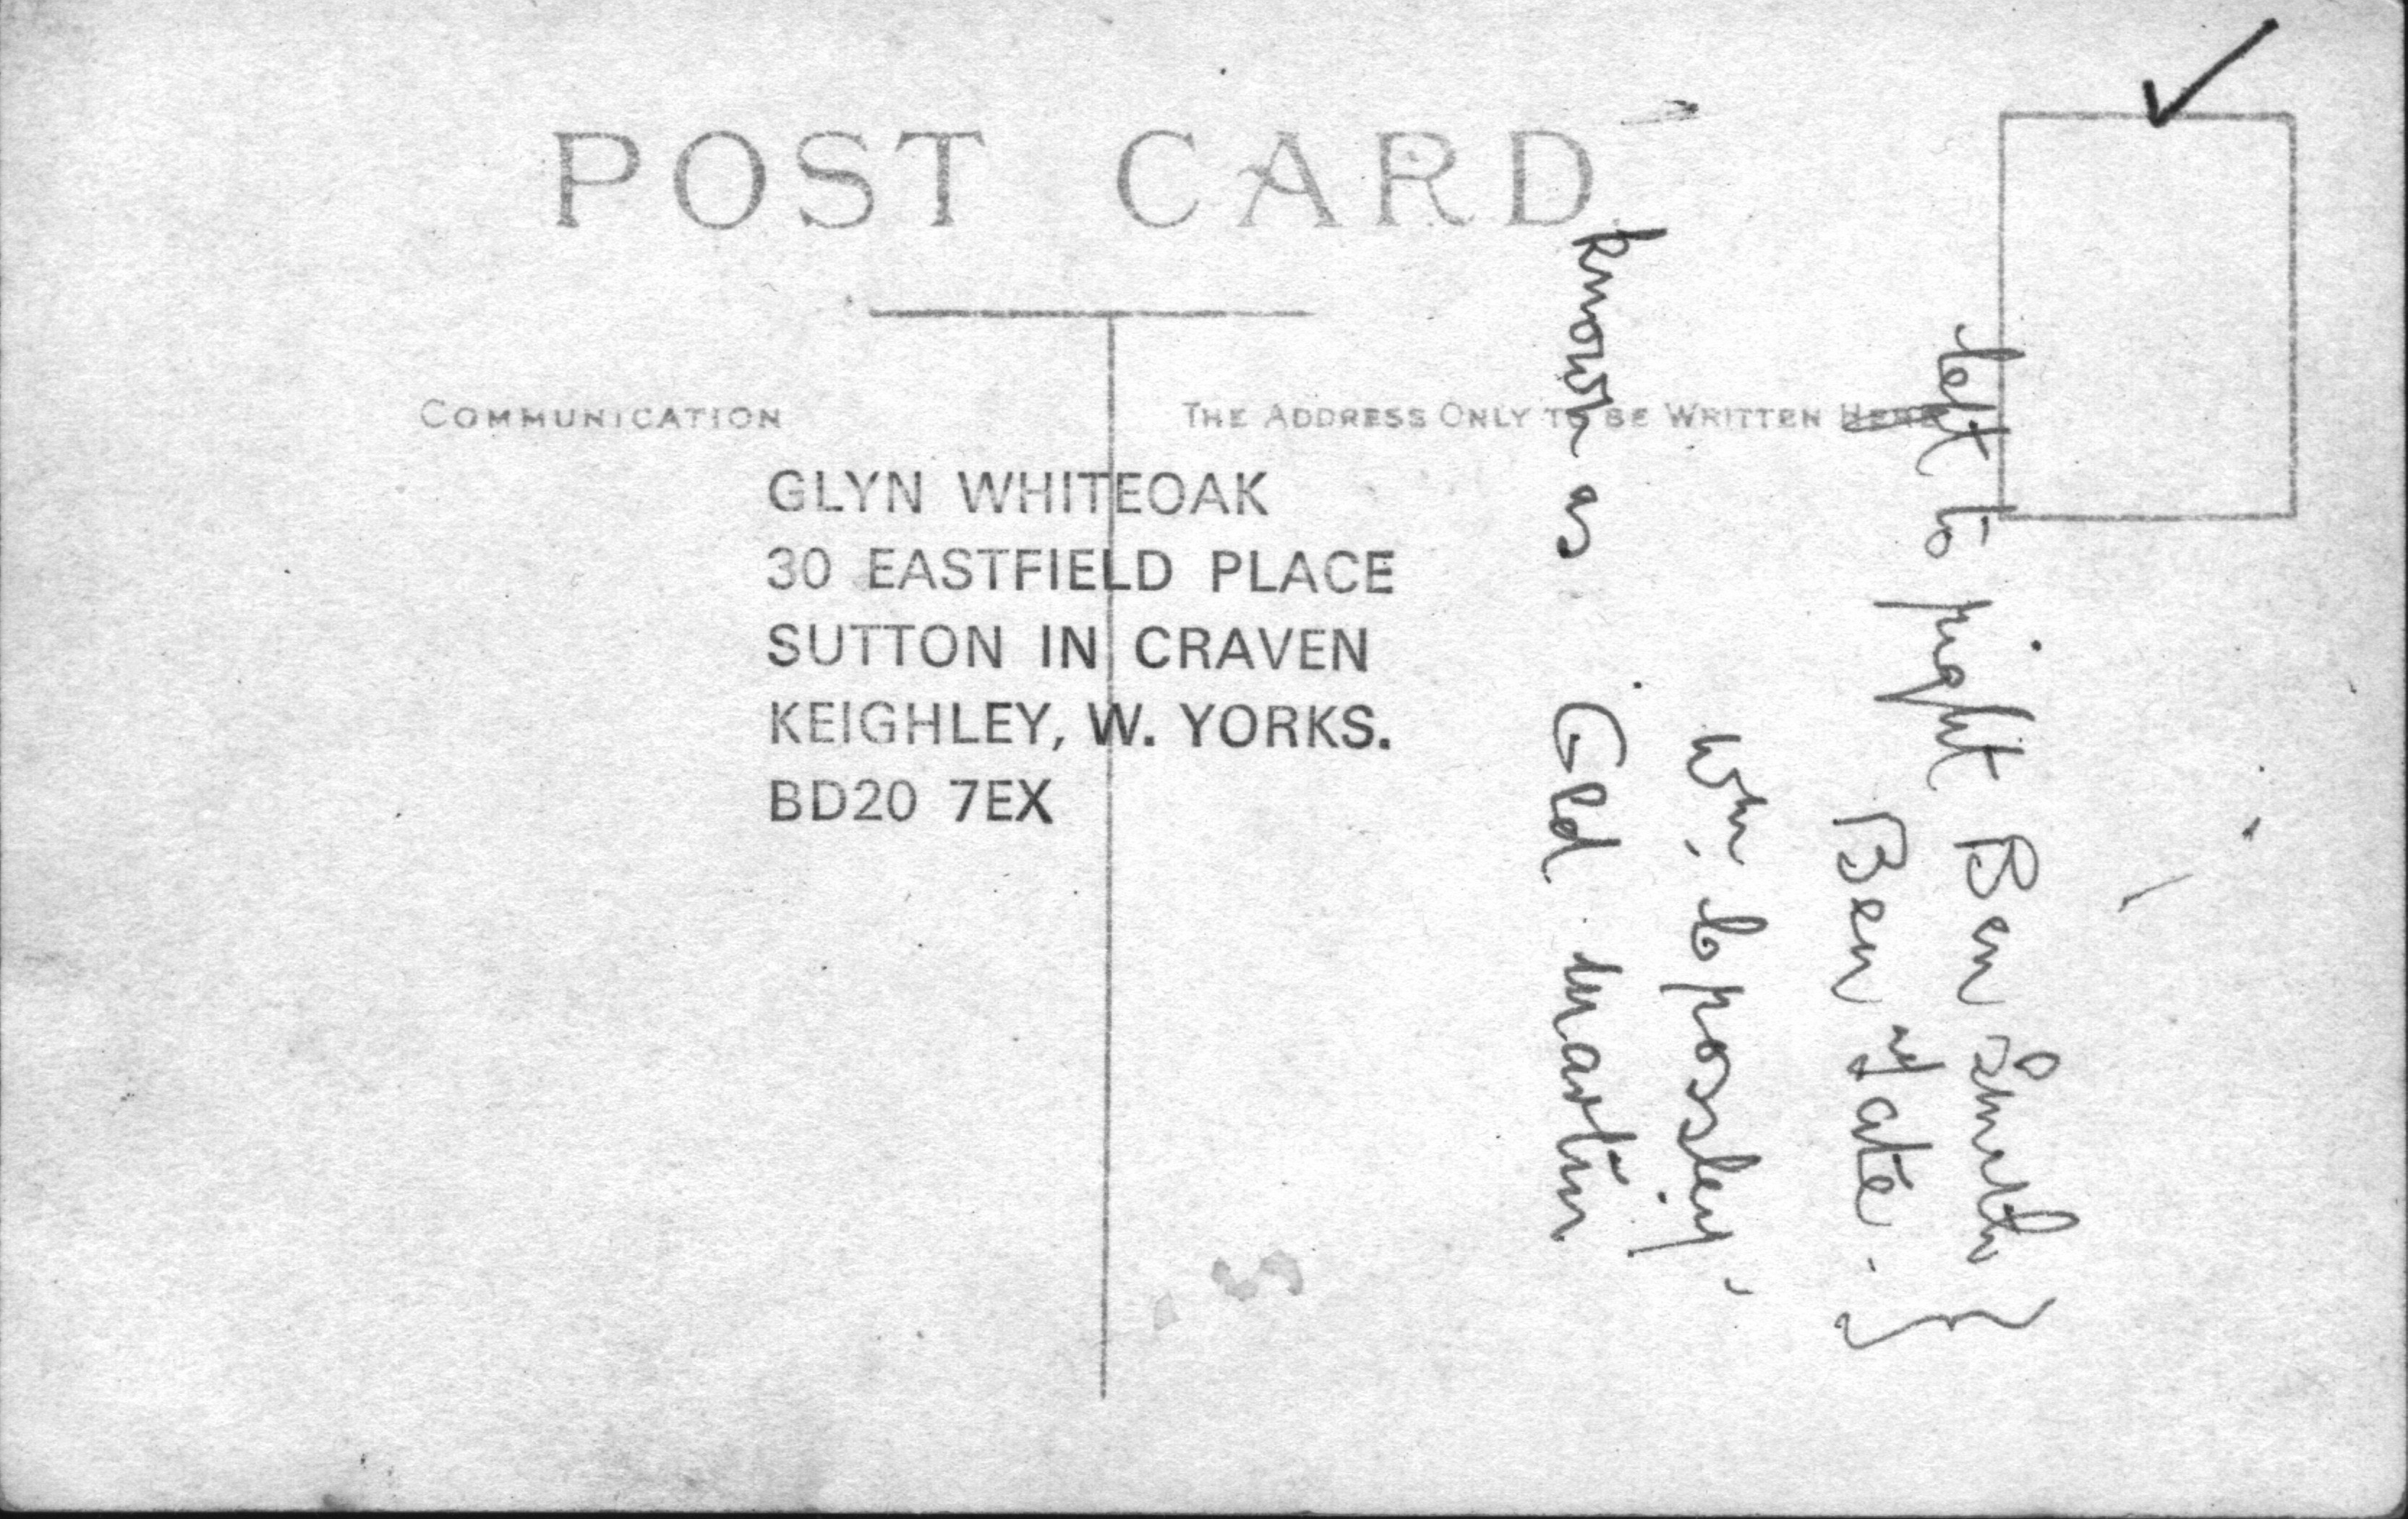 POST CARD
COMMUNICATION
THE ADDRESS ONLY TO BE WRITTEN HERE
GLYN WHITEOAK
30 EASTFIELD PLACE
SUTTON IN CRAVEN
KEIGHLEY, W. YORKS.
BD20 7EX
left to right Ben Smith
Ben Yate.
Wm.
known as Old Martin